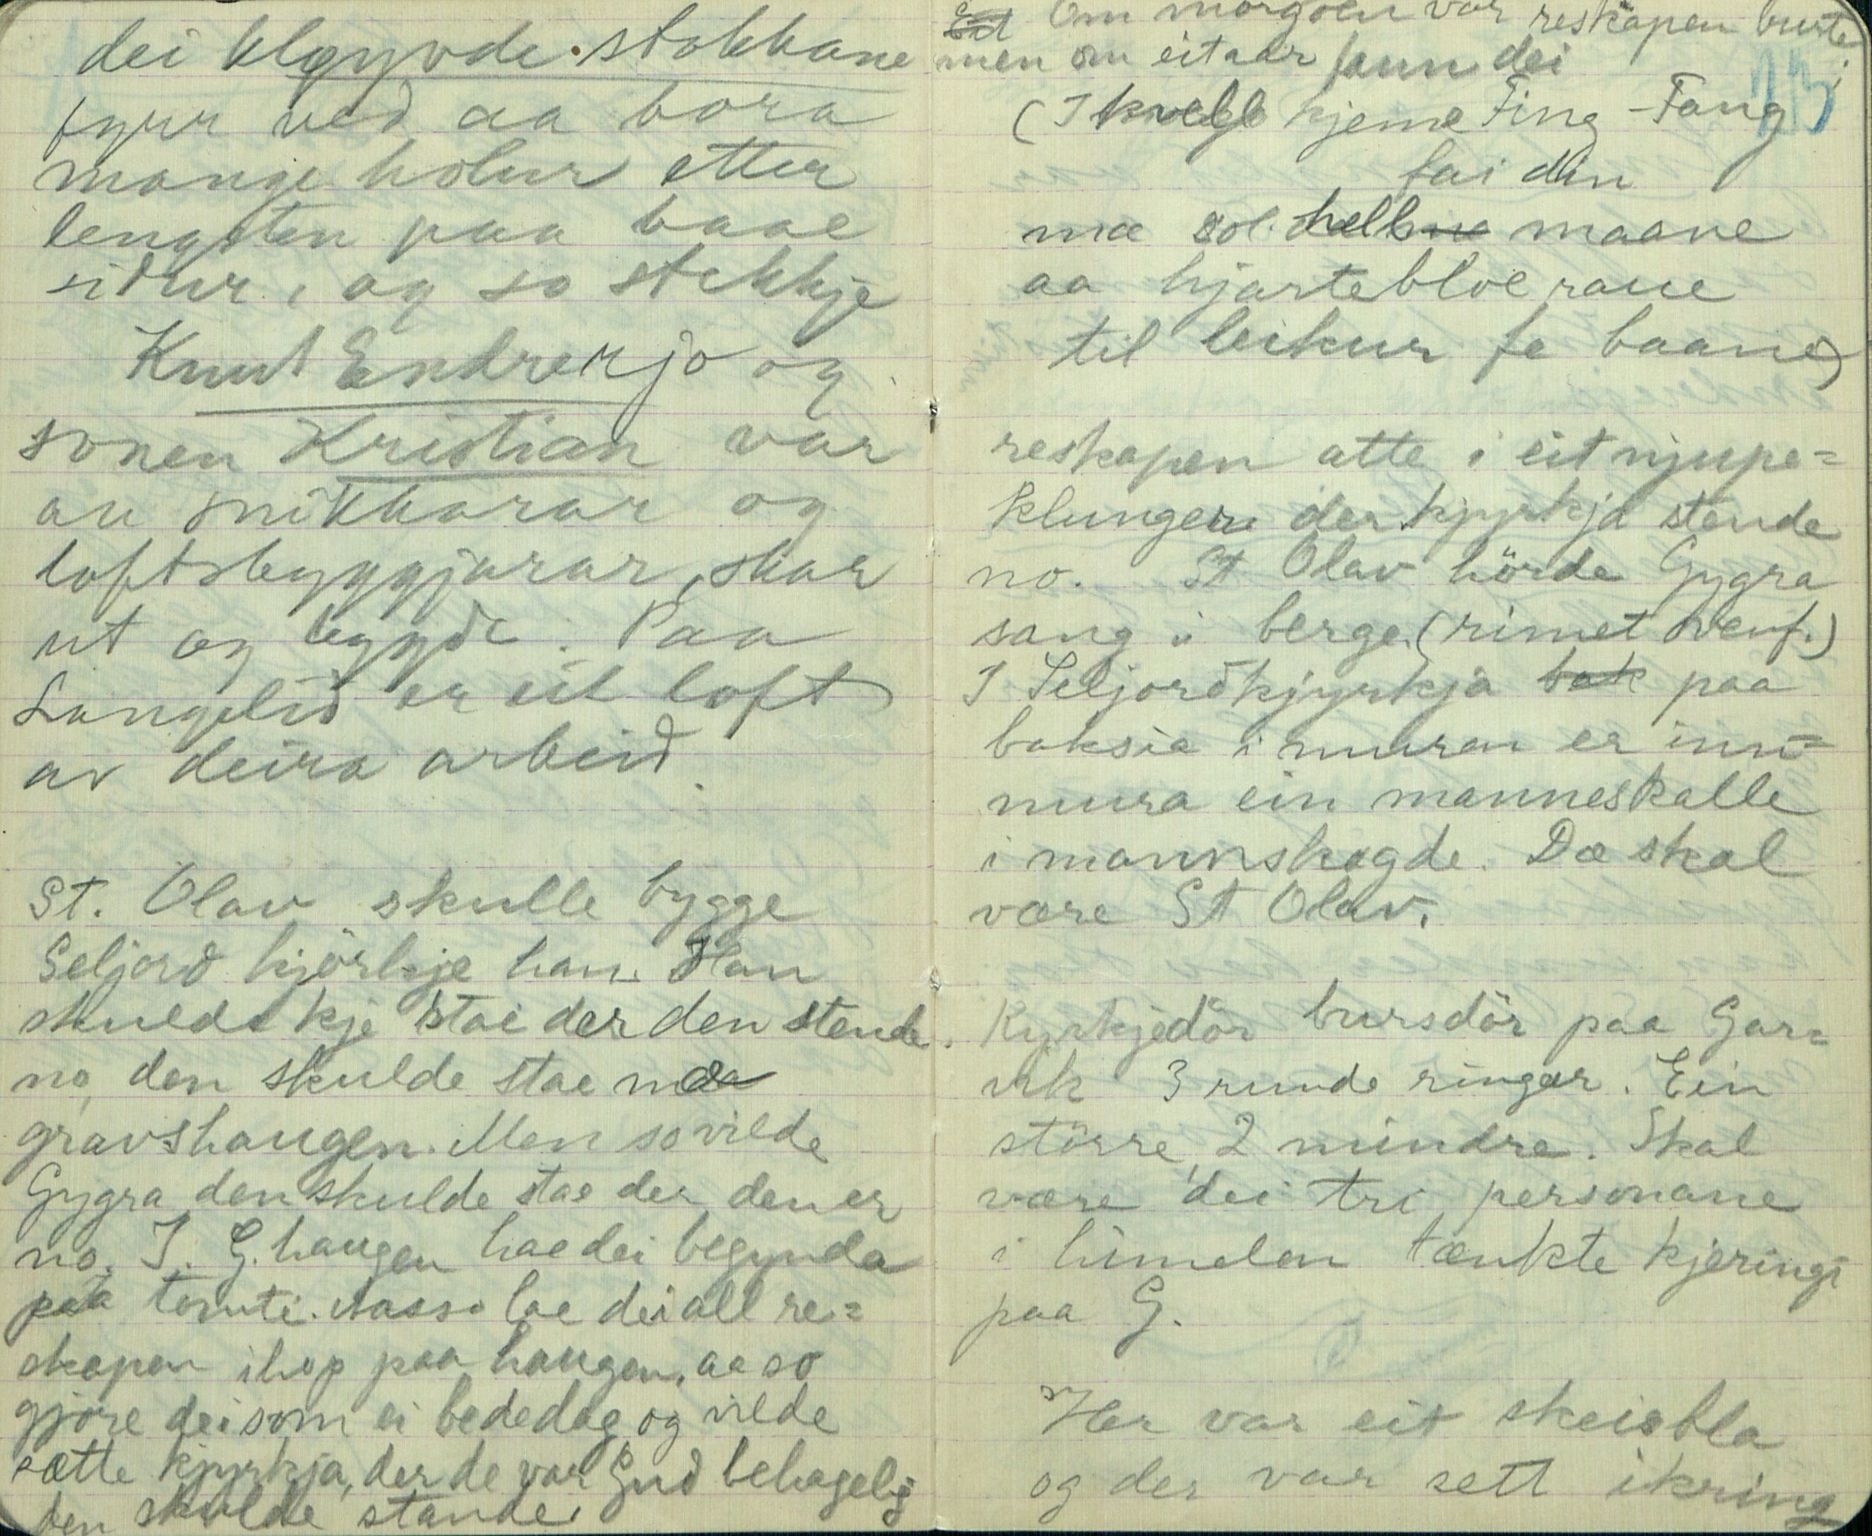 dei kløyvde stokkane
fyrr ved aa bora
mange holur etter
lengsten paa baae
sidur, og so stekkje
Knut Endrerjo og
sonen Kristian var
au snikkarar og
loftsbyggjarar, skar
ut og bygde. Paa
Langelid er eit loft
av deira arbeid.
St. Olav skulle bygge
Seljord kjörkje han. Han
skulde kje stai der den stende
no, den skulde stae
gravshaugen. Men so vilde
Gygra den skulde stae der den er
no. I. G. haugen hae dei begynda
paa tomti. Aasso lae dei all re=
skapen ihop paa haugen, aa so
gjöre dei som ei bededag og vilde
sætte kjyrkja, der de var Gud behagelig
den skulde stande.
Om morgoen var reskapen burte
men om eit aar fann dei
23
(I kvell kjeme Fing-Fang
fai din
mæ sol hell maane
aa hjartebloe rane
til leikur fe baane)
reskapen atte i eit njupe=
klunger der kjyrkja stende
no. St Olav hörde Gygra
sang i berge (rimet ovenf.)
I Seljordkjyrkja bak paa
baksia i muren er inn=
mura ein manneskalle
i mannshøgde. Dæ skal
være St Olav.
Kyrkjedör bursdör paa Gar=
vik 3 runde ringar. Ein
större, 2 mindre. Skal
være dei tri personane
i himelen tænkte kjeringi
paa G.
Her var eit skeisbla
og der var sett ikring